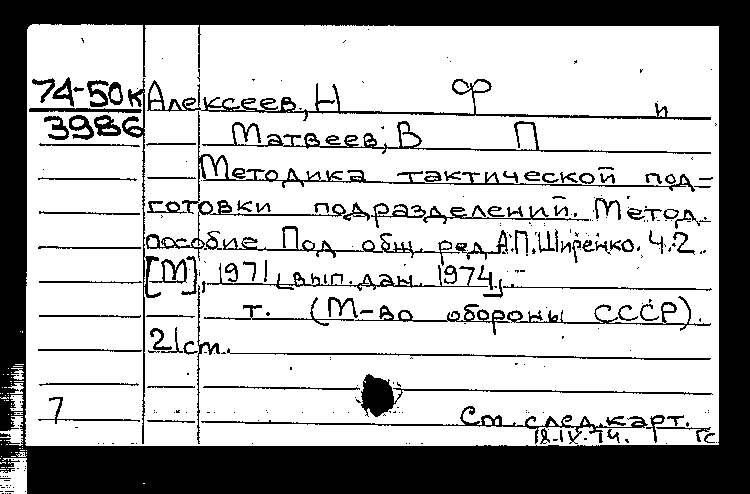 74-50к Алексеев, Н Ф и
3986 Матвеев, В П
Методика тактической под=
готовки подразделений. Метод.
пособие. Под общ. ред. А.П. Ширенко. Ч.2.
[М], 1971 [вып. дан. 1974].-
т. (М-во обороны СССР).
21 cm.
7 См. след. карт.
18-IX-74. гс